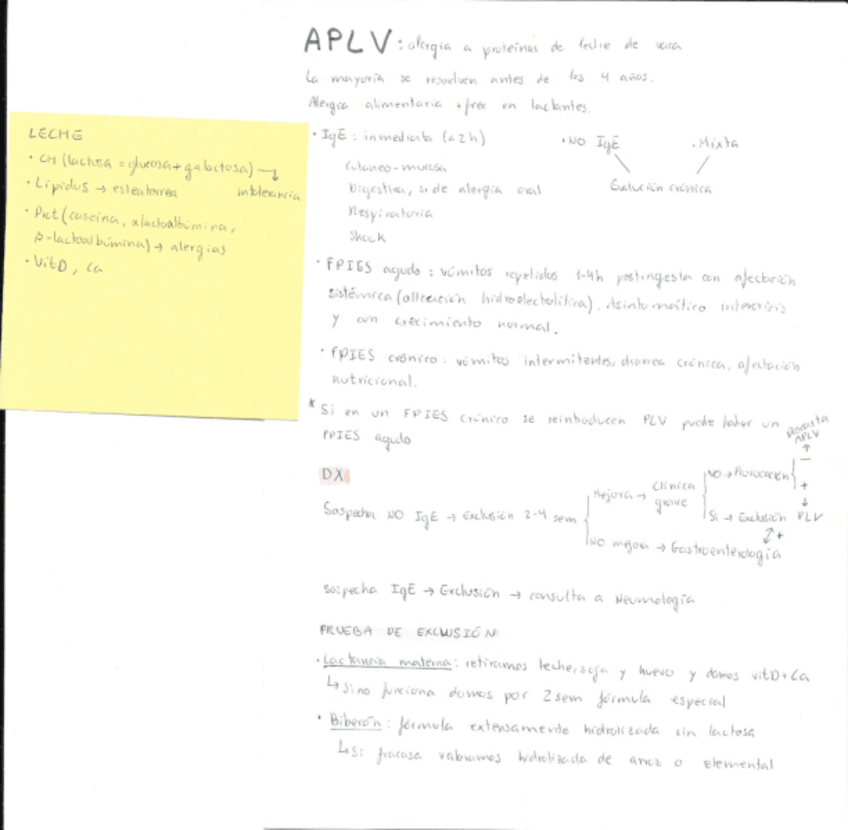 APLV : alergia a proteínas de leche de vaca
La mayoría se resuelven antes de los 4 años.
Alergia alimentaria +frec en lactantes.
LECHE
· CH (lactosa = glucosa + galactosa) → intolerancia
· Lípidos → esteatorrea
· Prot (caseína, αlactoalbúmina,
β-lactoalbúmina) → alergias
· Vit D, Ca
· IgE : inmediata (<2h)
Cutaneo-mucosa
Digestiva, sd de alergia oral
Respiratoria
Shock
· NO IgE
· Mixta
Evolución crónica
· FPIES agudo : vómitos repetidos 1-4h postingesta con afectación
sistémica (alteración hidroelectrolítica). Asintomático intercrisis
y con crecimiento normal.
· FPIES crónico : vómitos intermitentes, diarrea crónica, afectación
nutricional.
* Si en un FPIES crónico se reintroducen PLV puede haber un
FPIES agudo
DX
Sospecha NO IgE → Exclusión 2-4 sem
Mejora → Clínica grave
NO → Provocación
- → Descarta APLV
+ ↓
Si → Exclusión PLV
↑ +
NO mejora → Gastroenterología
Sospecha IgE → Exclusión → consulta a Neumología
PRUEBA DE EXCLUSIÓN
· Lactancia materna : retiramos leche, soja y huevo y damos vitD+Ca
↳ si no funciona damos por 2 sem fórmula especial
· Biberón : fórmula extensamente hidrolizada sin lactosa
↳ Si fracasa hidrolizada de arroz o elemental